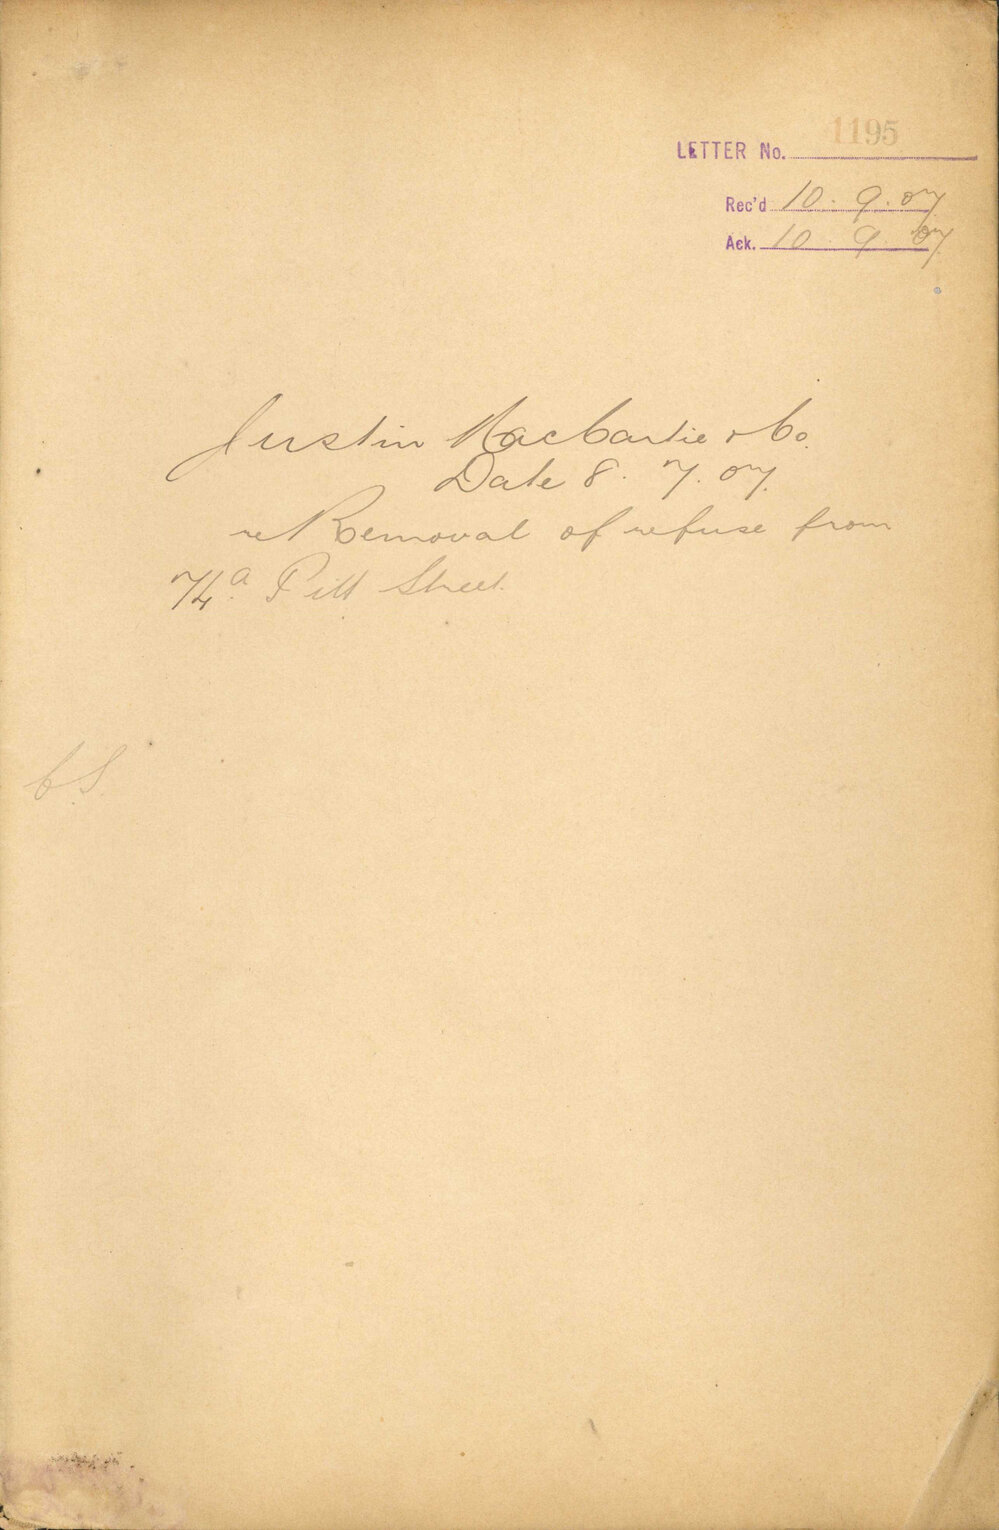 LETTER No. 1195
Rec'd 10.9.07
Ack. 10 9 07
Justin MacCartie & Co.
Date 8.7.07.
re Removal of refuse from
74a. Pitt Street.
C.S.